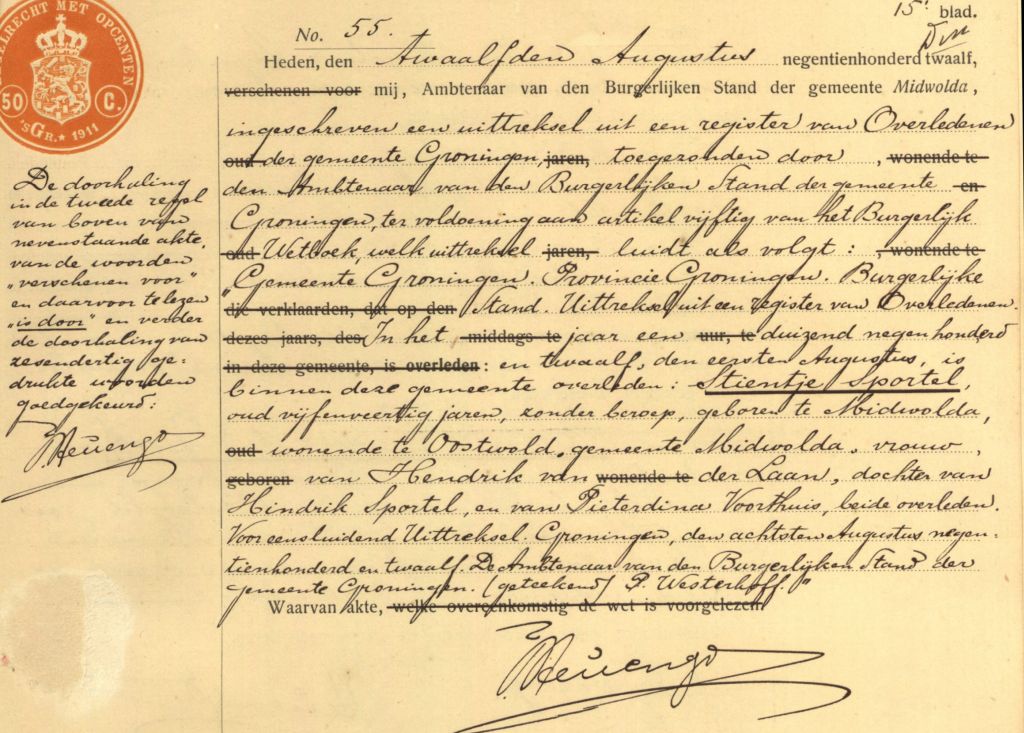 ZEGELRECHT MET OPCENTEN
50 C.
'sGR. ★ 1911
15e blad.
No. 55.
Heden, den Twaalfden Augustus negentienhonderd twaalf,
verschenen voor mij, Ambtenaar van den Burgerlijken Stand der gemeente Midwolda,
ingeschreven een uittreksel uit een register van Overledenen
oud der gemeente Groningen, jaren, toegezonden door , wonende te
den Ambtenaar van den Burgerlijken Stand der gemeente en
Groningen, ter voldoening aan artikel vijftig van het Burgerlijk
oud Wetboek, welk uittreksel jaren, luidt als volgt: , wonende te
"Gemeente Groningen. Provincie Groningen. Burgerlijke
die verklaarden, dat op den Stand. Uittreksel uit een register van Overledenen.
dezes jaars, des In het middags te jaar een uur, te duizend negenhonderd
in deze gemeente, is overleden: en twaalf, den eersten Augustus, is
binnen deze gemeente overleden: Stientje Sportel,
oud vijfenveertig jaren, zonder beroep, geboren te Midwolda,
oud wonende te Oostwold, gemeente Midwolda, vrouw ,
geboren van Hendrik van wonende te der Laan, dochter van
Hindrik Sportel, en van Pieterdina Voorthuis, beide overleden.
Voor eensluidend Uittreksel. Groningen, den achtsten Augustus negen-
tienhonderd en twaalf. De Ambtenaar van den Burgerlijken Stand der
gemeente Groningen. (geteekend) P. Westerhoff."
Waarvan akte, welke overeenkomstig de wet is voorgelezen.
De doorhaling
in de tweede regel
van boven van
nevenstaande akte,
van de woorden
"verschenen voor"
en daarvoor te lezen
"is door" en verder
de doorhaling van
zesendertig ge-
drukte woorden
goedgekeurd: